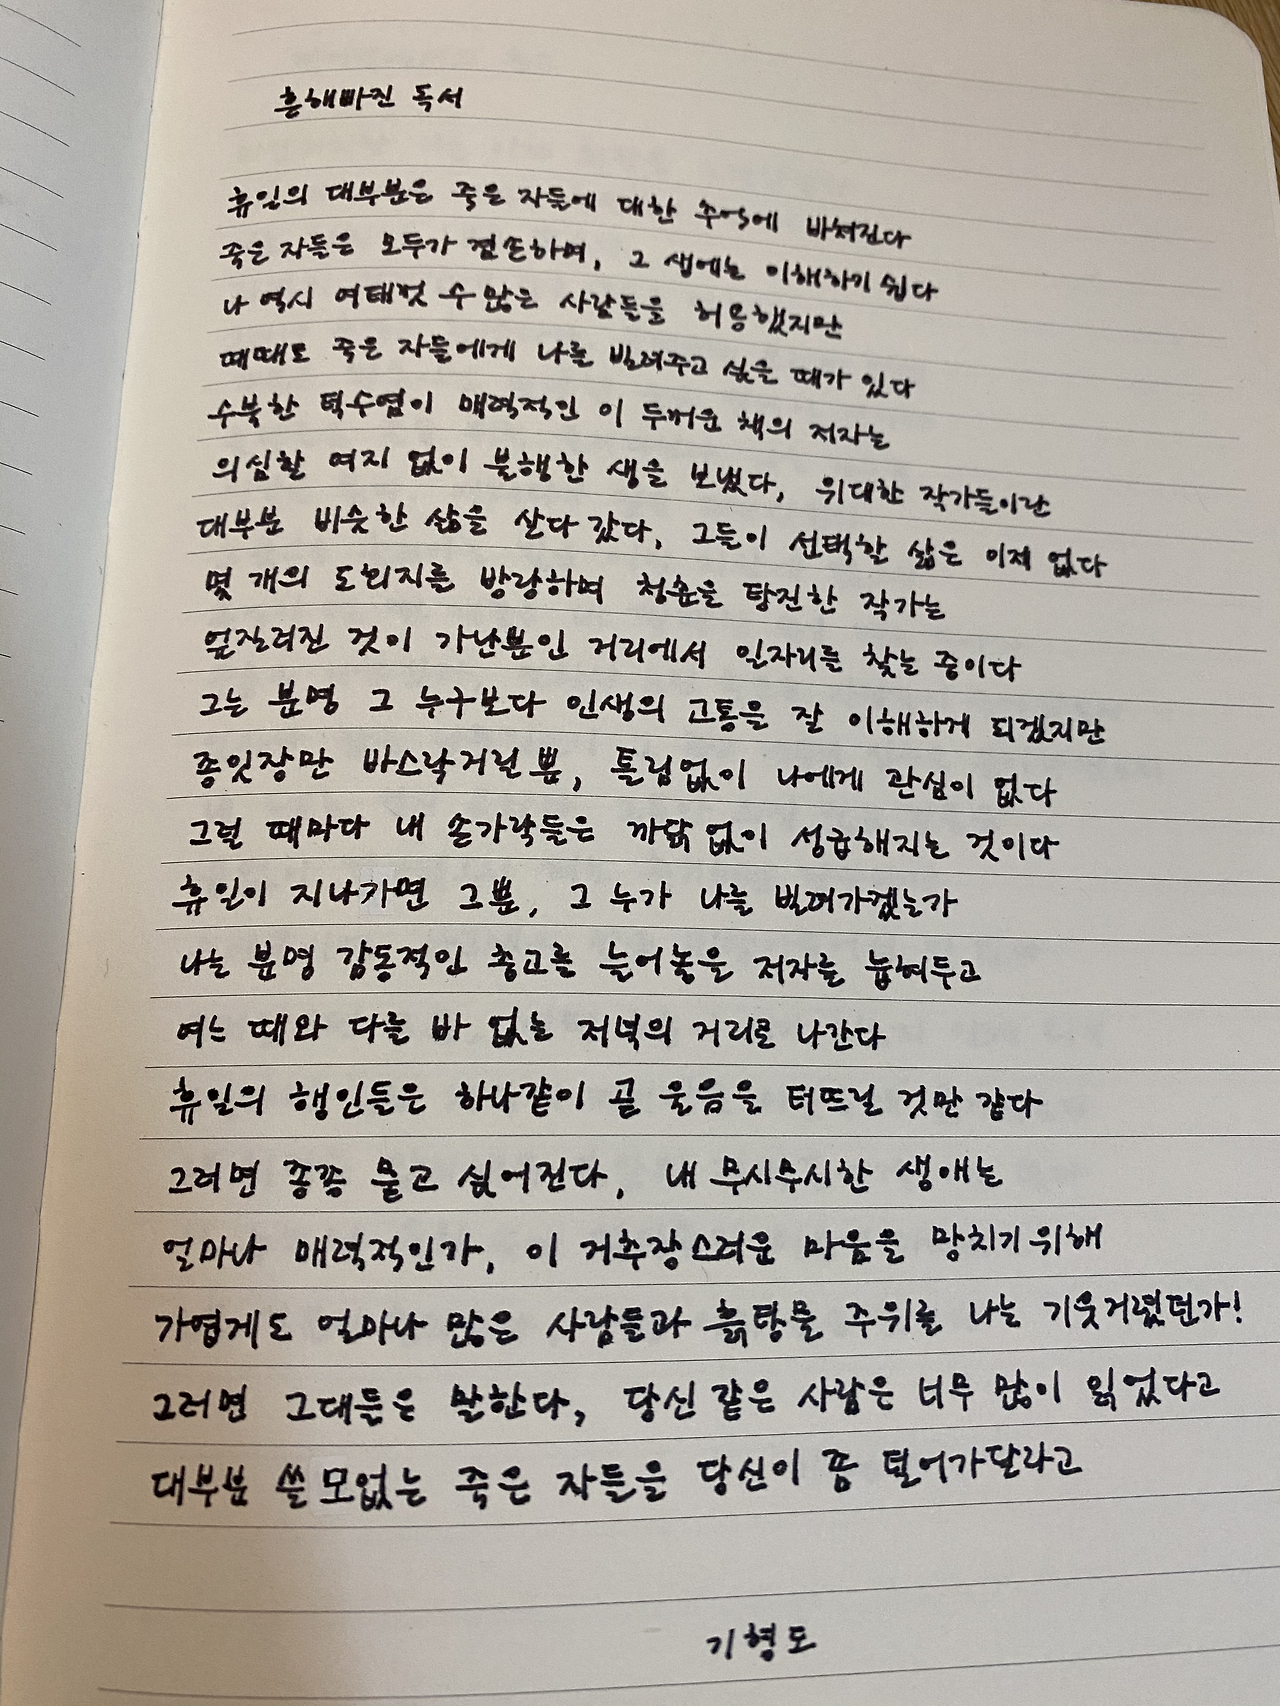 흔해빠진 독서
휴일의 대부분은 죽은 자들에 대한 추억에 바쳐진다
죽은 자들은 모두가 겸손하며, 그 생애는 이해하기 쉽다
나 역시 여태껏 수많은 사람들을 허용했지만
때때로 죽은 자들에게 나를 빌려주고 싶을 때가 있다
수북한 턱수염이 매력적인 이 두꺼운 책의 저자는
의심할 여지 없이 불행한 생을 보냈다, 위대한 작가들이란
대부분 비슷한 삶을 살다 갔다, 그들이 선택할 삶은 이제 없다
몇 개의 도회지를 방랑하며 청춘을 탕진한 작가는
엎질러진 것이 가난뿐인 거리에서 일자리를 찾는 중이다
그는 분명 그 누구보다 인생의 고통을 잘 이해하게 되겠지만
종잇장만 바스락거릴 뿐, 틀림없이 나에게 관심이 없다
그럴 때마다 내 손가락들은 까닭 없이 성급해지는 것이다
휴일이 지나가면 그뿐, 그 누가 나를 빌려가겠는가
나는 분명 감동적인 충고를 늘어놓을 저자를 눕혀두고
여느 때와 다를 바 없는 저녁의 거리로 나간다
휴일의 행인들은 하나같이 곧 울음을 터뜨릴 것만 같다
그러면 종종 묻고 싶어진다, 내 무시무시한 생애는
얼마나 매력적인가, 이 거추장스러운 마음을 망치기 위해
가엾게도 얼마나 많은 사람들과 흙탕물 주위를 나는 기웃거렸던가!
그러면 그대들은 말한다, 당신 같은 사람은 너무 많이 읽었다고
대부분 쓸모없는 죽은 자들을 당신이 좀 덜어가달라고
기형도